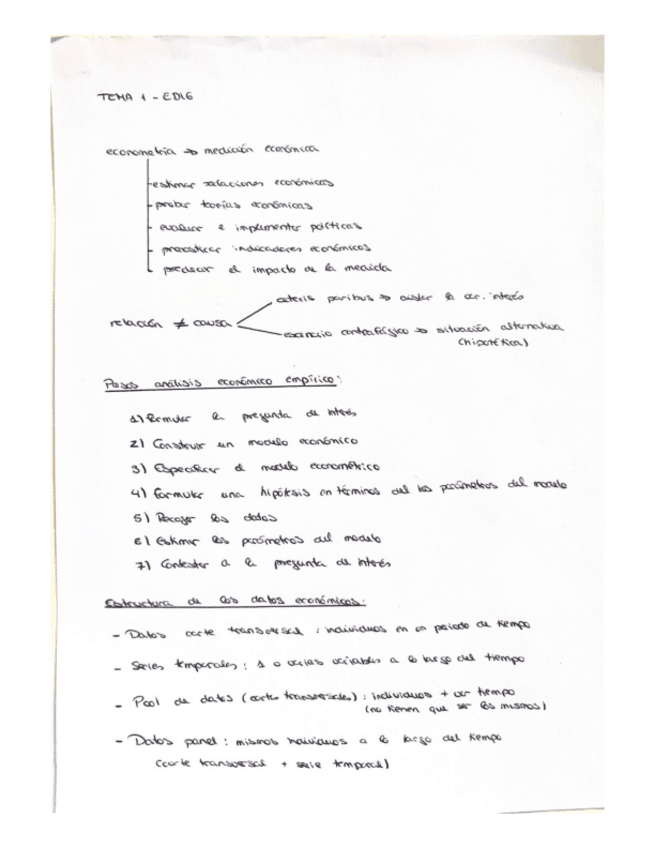 TEMA 1 - EDI6
econometría → medición económica
estimar relaciones económicas
probar teorías económicas
evaluar e implementar políticas
pronosticar indicadores económicos
predecir el impacto de la medida
ceteris paribus → aislar la var. interés
relación ≠ causa
escenario contrafáctico → situación alternativa
(hipotética)
Pasos análisis económico empírico:
1) Formular la pregunta de interés
2) Construir un modelo económico
3) Especificar el modelo econométrico
4) Formular una hipótesis en términos del los parámetros del modelo
5) Recoger los datos
6) Estimar los parámetros del modelo
7) Contestar a la pregunta de interés
Estructura de los datos económicos:
- Datos corte transversal : individuos en un periodo de tiempo
- Series temporales : 1 o varias variables a lo largo del tiempo
- Pool de datos (cortes transversales) : individuos + var tiempo
(no tienen que ser los mismos)
- Datos panel : mismos individuos a lo largo del tiempo
(corte transversal + serie temporal)